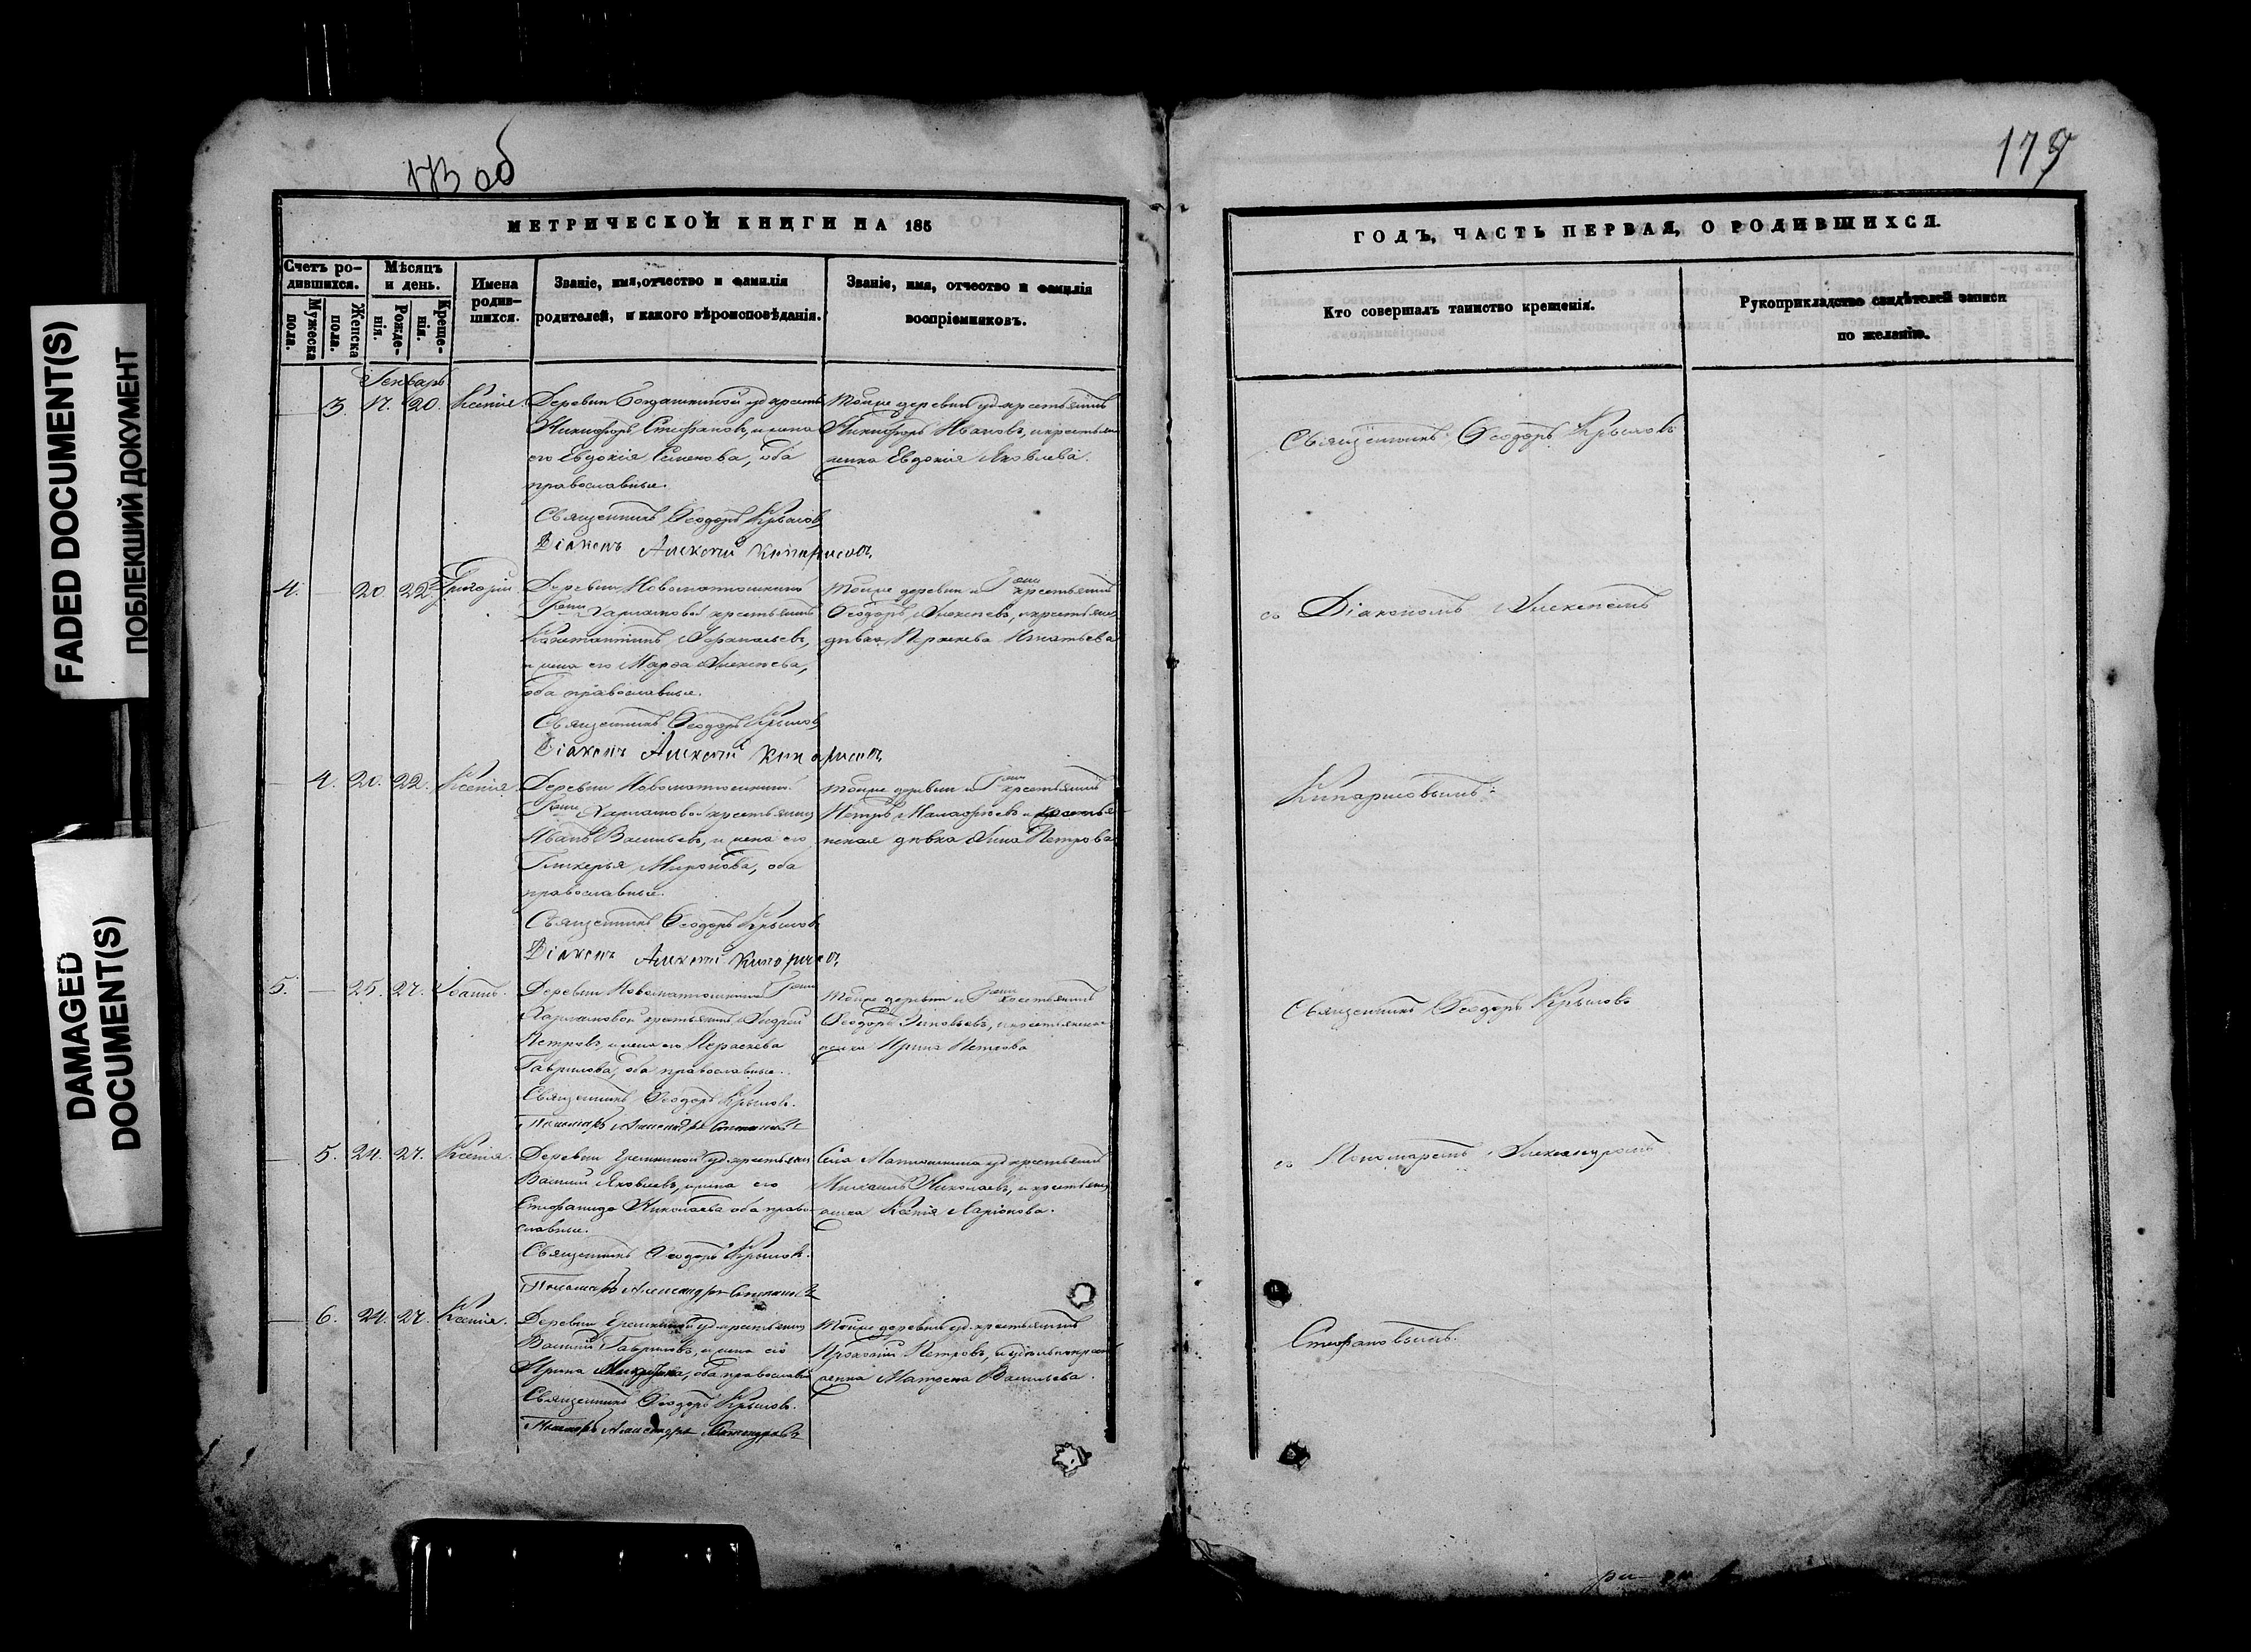 FADED DOCUMENT(S)
ПОБЛЕКШИЙ ДОКУМЕНТ
DAMAGED
DOCUMENT(S)
173 об
МЕТРИЧЕСКОЙ КНИГИ НА 185
Счетъ ро-
дившихся.
Мужеска
пола.
Женска
пола.
Мѣсяцъ
и день.
Рожде-
нія.
Креще-
нія.
Имена
родив-
шихся.
Званіе, имя, отчество и фамилія
родителей, и какого вѣроисповѣданія.
Званіе, имя, отчество и фамилія
воспріемниковъ.
Генварь
3. 17. 20. Ксенія.
Деревни уд. крест
Никифоръ Стефановъ, и жена
его Евдокія Семенова, оба
православные.
Священникъ Ѳеодоръ Крыловъ
Діаконъ Алексей Кипарисовъ
Тойже деревни уд. крестьянинъ
Никифоръ Ивановъ, и крестьян
ка Евдокія Яковлева.
4. 20. 22. Григорій
Деревни Новоматюшкиной
крестьянинъ
Константинъ Аѳанасьевъ,
и жена его Марѳа Алексѣева,
оба православные.
Священникъ Ѳеодоръ Крыловъ
Діаконъ Алексей Кипарисовъ
Тойже деревни и крестьянинъ
Ѳеодоръ Алексѣевъ, и крестьян
дѣвка Параскева Игнатьева
4. 20. 22. Ксенія.
Деревни Новоматюшкиной
крестьянинъ
Иванъ Васильевъ, и жена его
Гликерья Миронова, оба
православные.
Священникъ Ѳеодоръ Крыловъ
Діаконъ Алексей Кипарисовъ
Тойже деревни и крестьянинъ
Петръ и крестья
нская дѣвка Анна Петрова
5. 25. 27. Іоаннъ.
Деревни Новоматюшкиной
крестьянинъ Андрей
Петровъ, и жена его Параскева
Гаврилова, оба православные.
Священникъ Ѳеодоръ Крыловъ.
Пономарь Александръ Стефановъ
Тойже деревни и крестьянинъ
Ѳеодоръ Зиновьевъ, и крестьян
Ирина Петрова
5. 24. 27. Ксенія.
Деревни Еремкиной уд. крестьянин
Василій Яковлевъ, и жена его
Стефанида Николаева оба право-
славные.
Священникъ Ѳеодоръ Крыловъ.
Пономарь Александръ Стефановъ
Села Матюшкина уд. крестьянинъ
Михаилъ Николаевъ, и крестьян
ка Ксенія Ларіонова.
6. 24. 27. Ксенія.
Деревни Еремкиной уд. крестьянин
Василій Гавриловъ, и жена его
Ирина, оба православн
Священникъ Ѳеодоръ Крыловъ.
Пономарь Александръ
Тойже деревни уд. крестьянинъ
Прокопій Петровъ, и
Матрона Васильева.
ГОДЪ, ЧАСТЬ ПЕРВАЯ, О РОДИВШИХСЯ.
Кто совершалъ таинство крещенія.
Рукоприкладство свидѣтелей записи
по желанію.
Священникъ Ѳеодоръ Крыловъ
съ Діакономъ Алексѣемъ
Кипарисовымъ.
Священникъ Ѳеодоръ Крыловъ
съ Пономаремъ Александромъ
Стефановымъ.